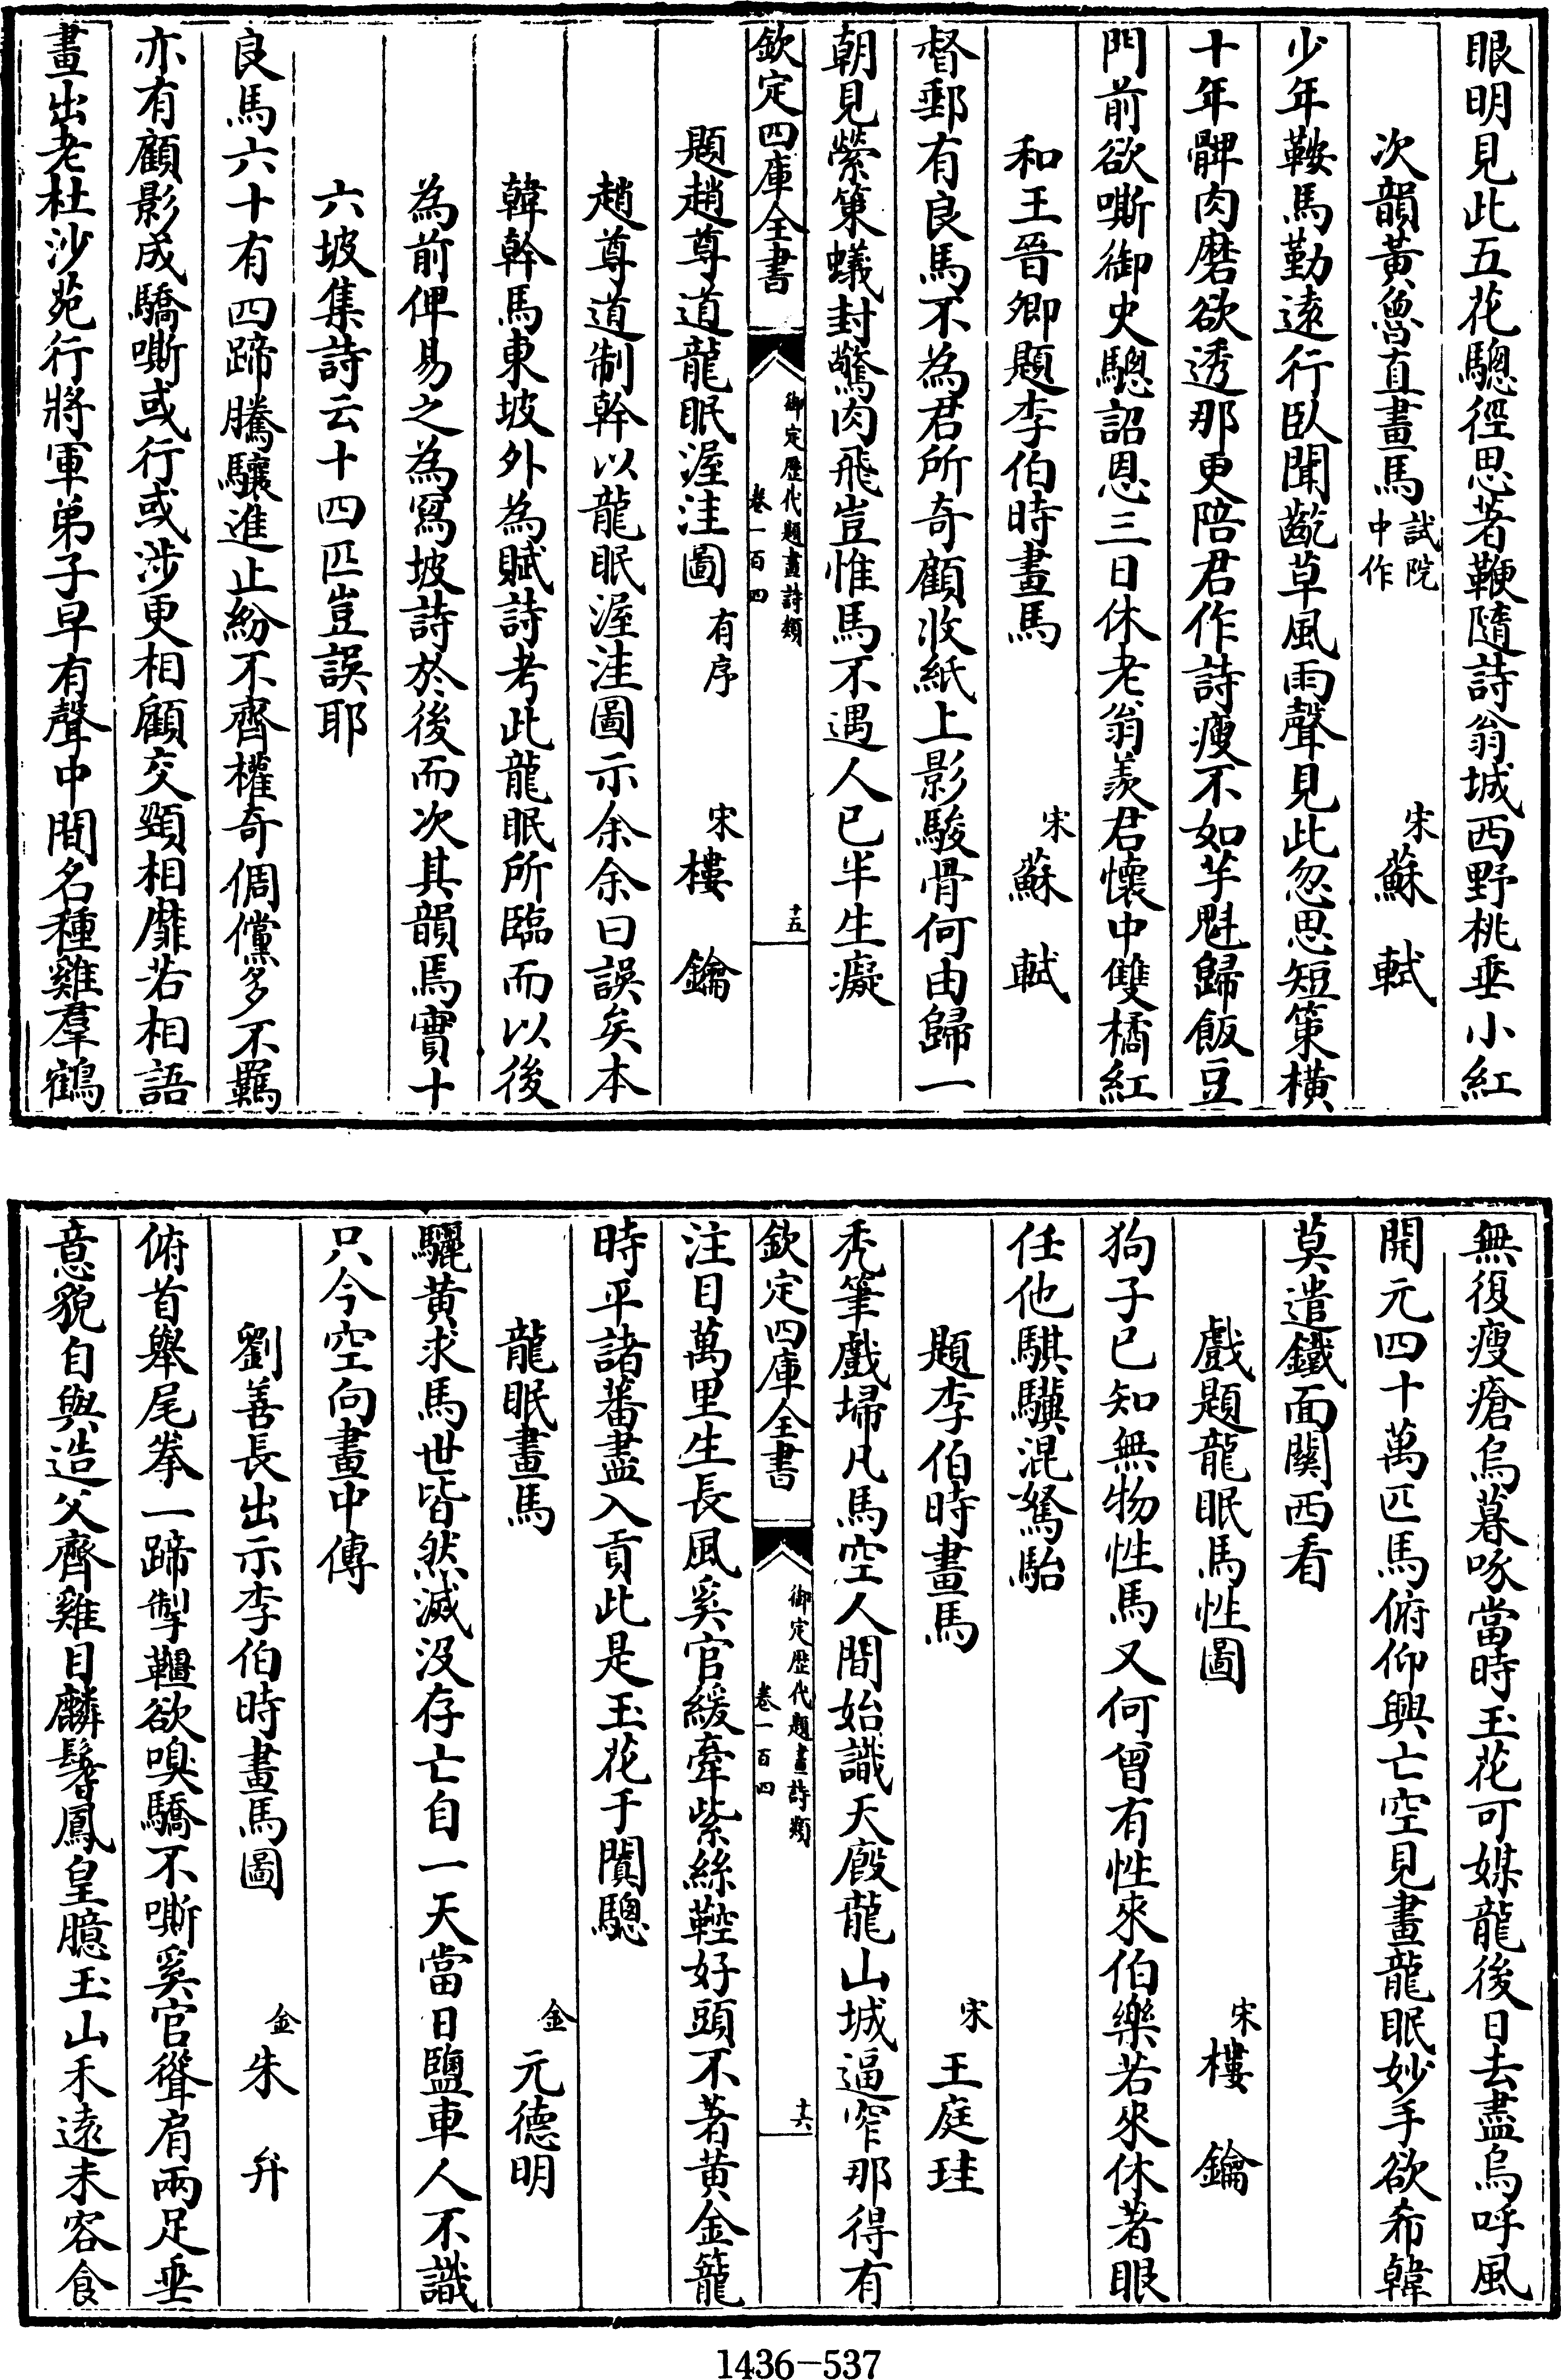 眼明見此五花驄徑思著鞭隨詩翁城西野桃垂小紅
次韻黃魯直畫馬試院中作 宋蘇軾
少年鞍馬勤遠行臥聞齕草風雨聲見此忽思短策橫
十年髀肉磨欲透那更陪君作詩瘦不如芋魁歸飯豆
門前欲嘶御史驄詔恩三日休老翁羨君懷中雙橘紅
和王晉卿題李伯時畫馬 宋蘇軾
督郵有良馬不為君所奇顧收紙上影駿骨何由歸一
朝見縈策蟻封驚肉飛豈惟馬不遇人已半生癡
欽定四庫全書 御定歷代題畫詩類 卷一百四 十五
題趙尊道龍眠渥洼圖有序 宋樓鑰
趙尊道制幹以龍眠渥洼圖示余余曰誤矣本
韓幹馬東坡外為賦詩考此龍眠所臨而以後
為前俾易之為寫坡詩於後而次其韻馬實十
六坡集詩云十四匹豈誤耶
良馬六十有四蹄騰驤進止紛不齊權奇倜儻多不羈
亦有顧影成驕嘶或行或涉更相顧交頸相靡若相語
畫出老杜沙苑行將軍弟子早有聲中間名種雞羣鶴
無復瘦瘡烏暮啄當時玉花可媒龍後日去盡烏呼風
開元四十萬匹馬俯仰興亡空見畫龍眠妙手欲希韓
莫遣鐵面關西看
戲題龍眠馬性圖 宋樓鑰
狗子已知無物性馬又何曾有性來伯樂若來休著眼
任他騏驥混駑駘
題李伯時畫馬 宋王庭珪
禿筆戲埽凡馬空人間始識天廄龍山城逼窄那得有
欽定四庫全書 御定歷代題畫詩類 卷一百四 十六
注目萬里生長風奚官緩牽紫絲鞚好頭不著黃金籠
時平諸蕃盡入貢此是玉花于闐驄
龍眠畫馬 金元德明
驪黃求馬世皆然滅沒存亡自一天當日鹽車人不識
只今空向畫中傳
劉善長出示李伯時畫馬圖 金朱弁
俯首舉尾拳一蹄掣韁欲嗅驕不嘶奚官聳肩兩足垂
意貌自與造父齊雞目麟鬐鳳皇臆玉山禾遠未容食
1436-537